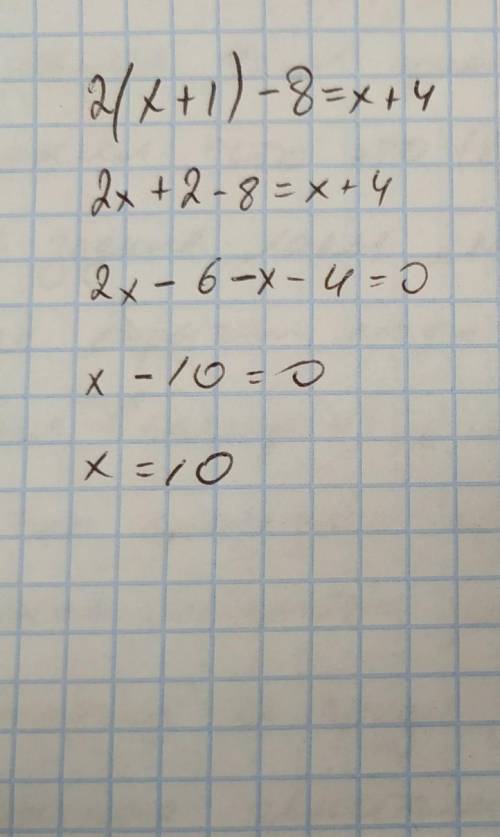 2(x+1)-8=x+4
2x+2-8=x+4
2x-6-x-4=0
x-10=0
x=10